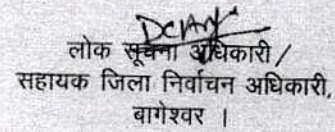 लोक सूचना अधिकारी /
सहायक जिला निर्वाचन अधिकारी,
बागेश्वर ।